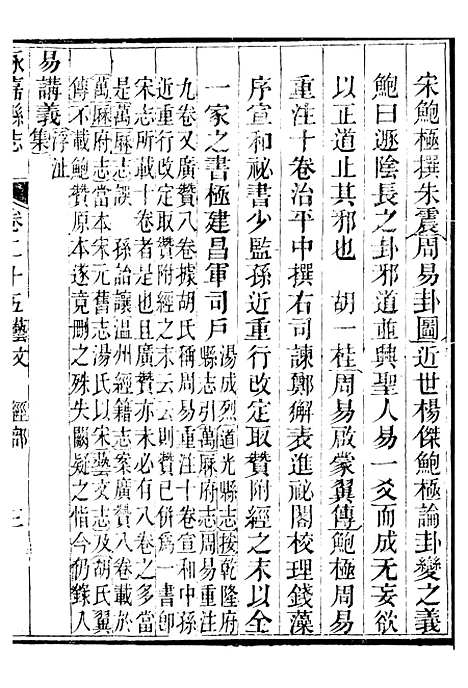 宋鮑極撰朱震周易卦圖近世楊傑鮑極論卦變之義
鮑曰遯陰長之卦邪道並興聖人易一爻而成无妄欲
以正道止其邪也　胡一桂周易啟蒙翼傳鮑極周易
重注十卷治平中撰右司諫鄭獬表進祕閣校理錢藻
序宣和祕書少監孫近重行改定取贊附經之末以全
一家之書極建昌軍司戶
湯成烈道光縣志按乾隆府
縣志引萬厤府志周易重注
九卷又廣贊八卷據胡氏稱周易重注十卷宣和中孫
近重行改定取贊附經之末云云則贊已併為一書卽
宋志所載十卷者是也且廣贊亦未必有八卷之多當
是萬厤志誤　孫詒讓温州經籍志案廣贊八卷載於
萬厤府志當本宋元舊志湯氏以宋藝文志及胡氏翼
傳不載鮑贊原本遂竟删之殊失闕疑之恉今仍錄入
易講義
浮沚
集
永嘉縣志　卷二十五藝文　經部　三